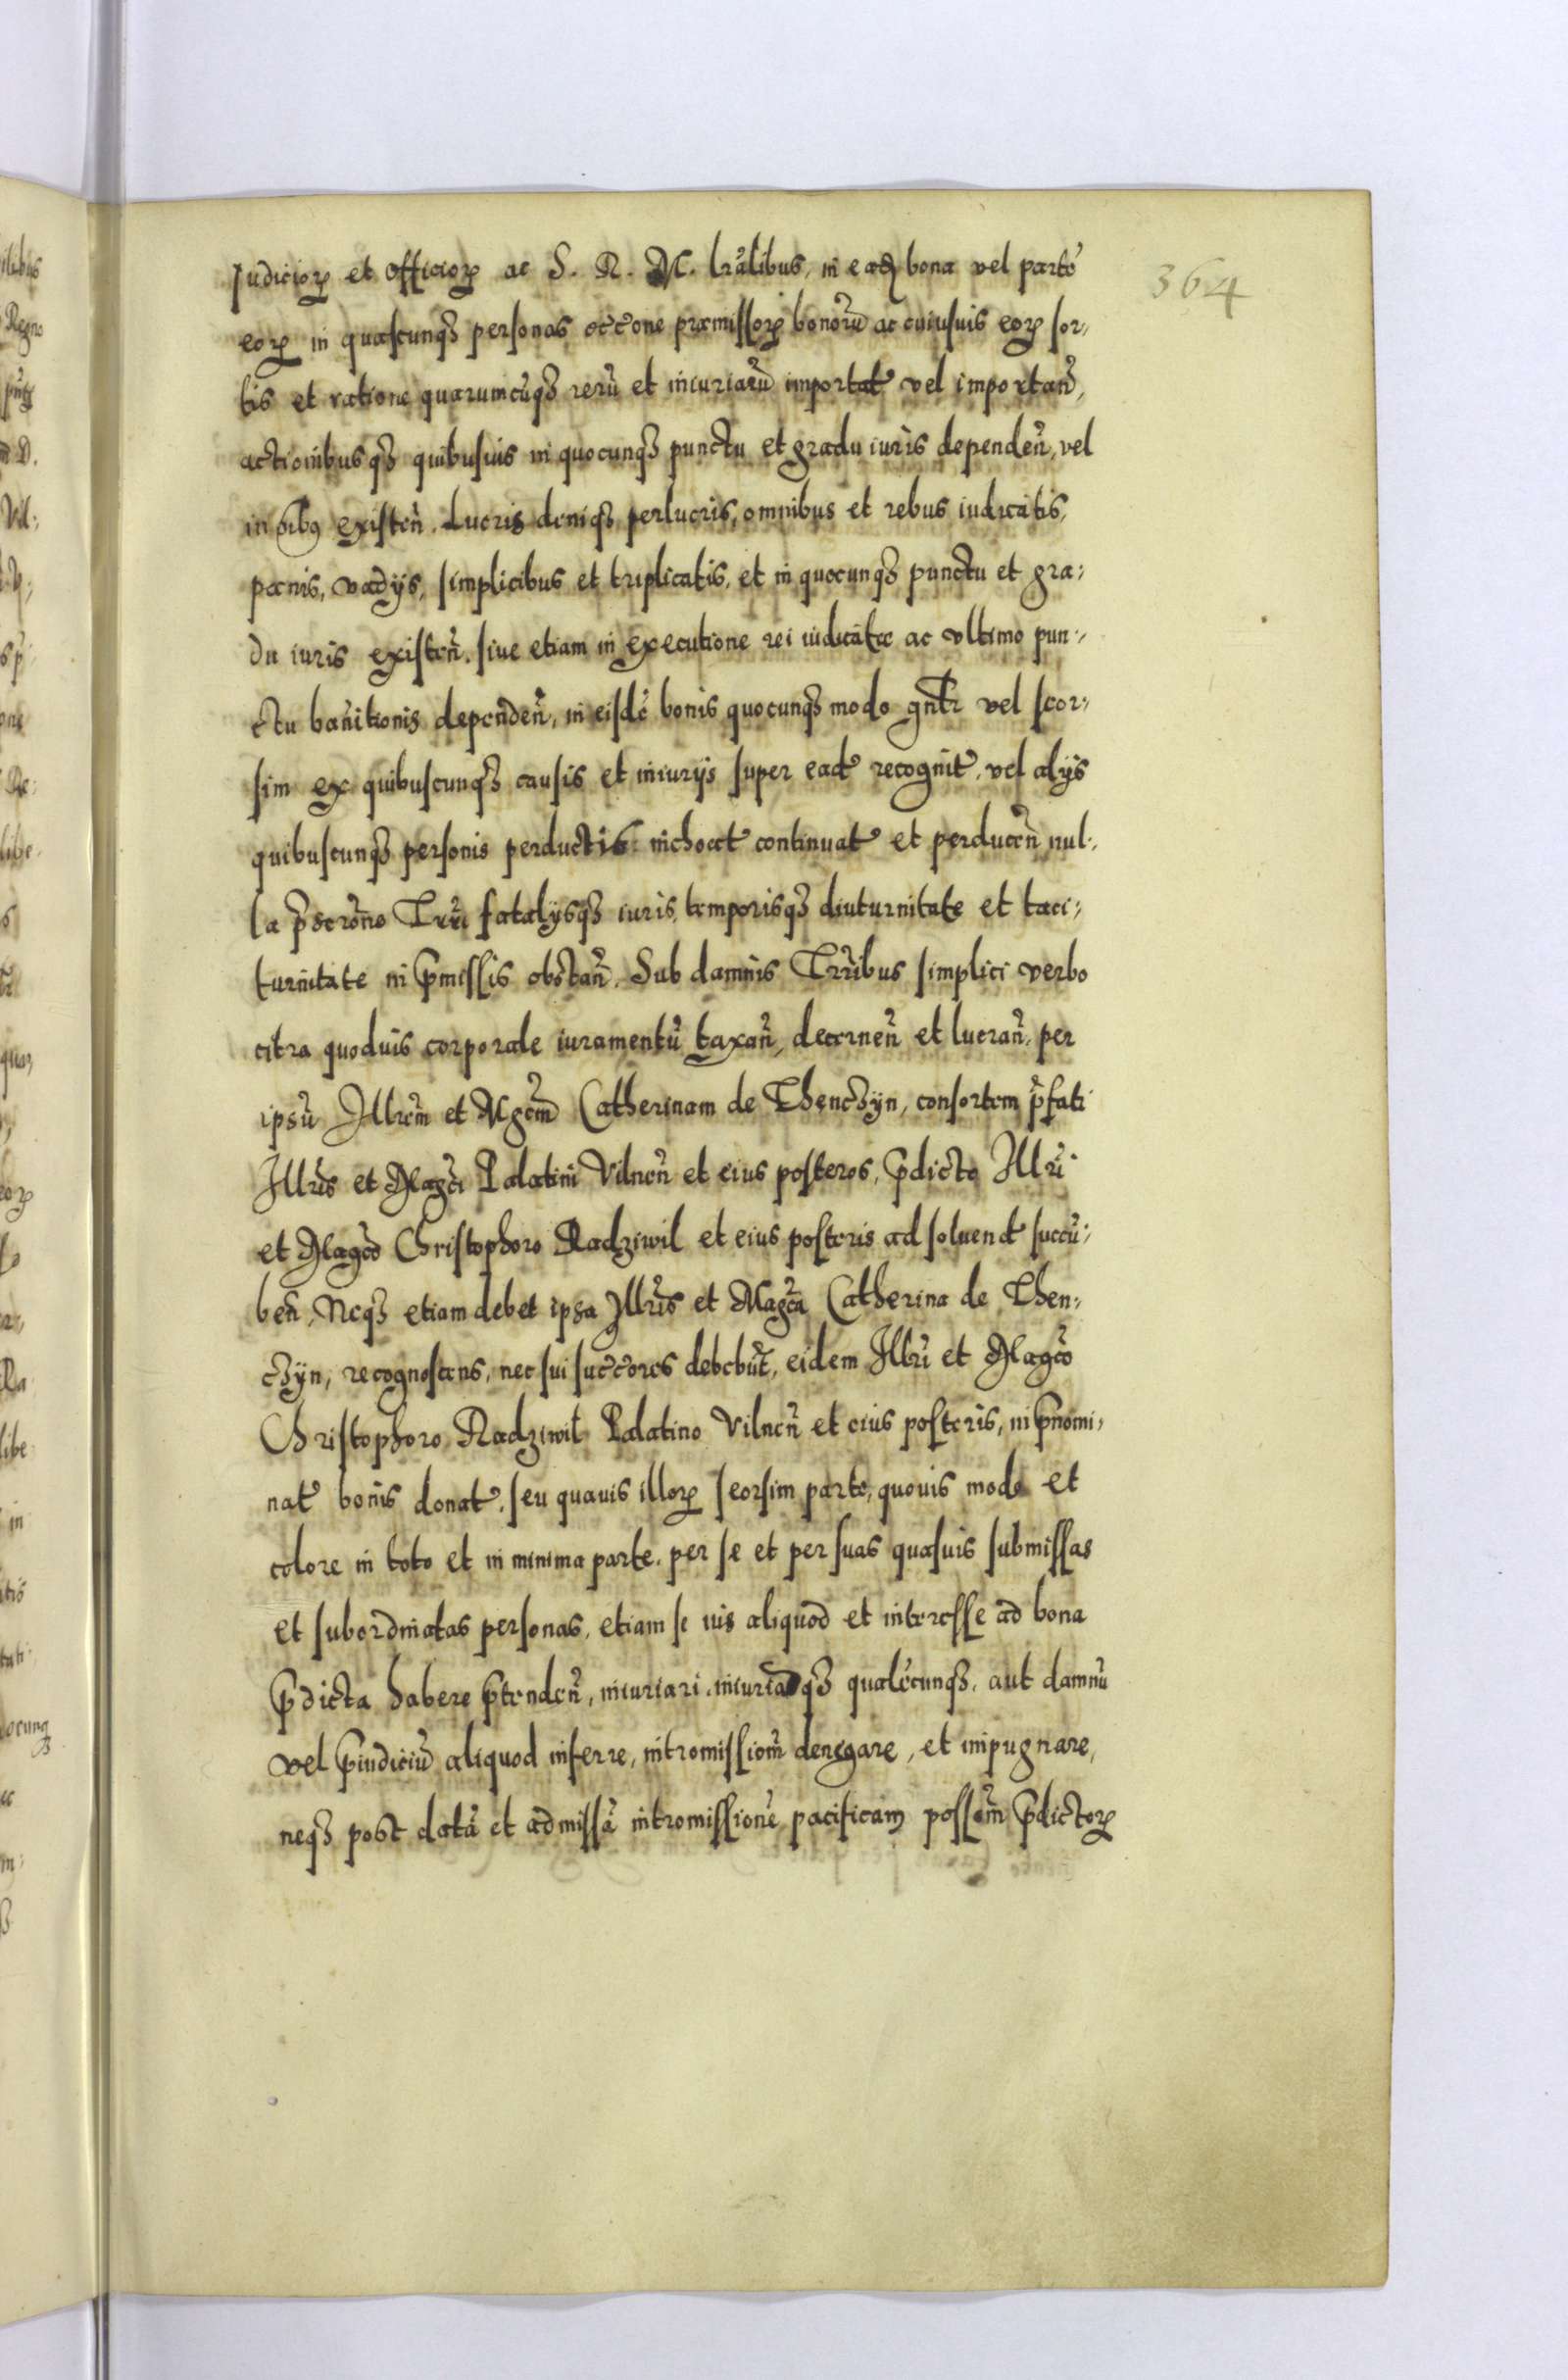 364
Judicioꝝ et officioꝝ ac S. R. M. lralibus, in eadem bona vel parte
eoꝝ in quascunqꝫ personas occone præmissoꝝ bonorū ac cuiusuis eoꝝ sor,
tis et ratione quarumcūqꝫ rerū et iniuriarū importat vel importan̄,
actionibusqꝫ quibusuis in quocunqꝫ punctu et gradu iuris dependen̄, vel
in existen̄. Lucris deniqꝫ perlucris, omnibus et rebus iudicatis,
pænis, vadijs, simplicibus et triplicatis, et in quocunqꝫ punctu et gra:
du iuris existen̄. siue etiam in executione rei iudicatæ ac vltimo pun:
ctu banitionis dependen̄, in eisdē bonis quocunqꝫ modo gnlr vel seor,
sim ex quibuscunqꝫ causis et iniurijs super ead recognit, vel alijs
quibuscunqꝫ personis perductis inchoat continuat et perducen̄ nul,
la pscrone Trri fatalijsqꝫ iuris, temporisqꝫ diuturnitate et taci,
turnitate in pmissis obstan̄. Sub damnis Trribus simplici verbo
citra quoduis corporale iuramentū taxan̄, decernen̄ et lucran̄, per
ipsū Illrem et Mgcm Catherinam de Thenczyn, consortem pfati
Illris et Magci Palatini Vilnen̄ et eius posteros, pdicto Illri
et Magco Christophoro Radziwil et eius posteris ad soluend succū,
ben̄, Neqꝫ etiam debet ipsa Illris et Magca Catherina de Then,
czyn, recognoscens, nec sui succores debebūt, eidem Illri et Magco
Christophoro Radziwil Palatino Vilnen̄ et eius posteris, in pnomi,
nat bonis donat, seu quauis illoꝝ seorsim parte, quouis modo et
colore in toto et in minima parte, per se et per suas quasuis submissas
et subordinatas personas, etiam se ius aliquod et interesse ad bona
pdicta habere ptenden̄, iniuriari, iniuriamqꝫ qualēcunqꝫ, aut damnū
vel piudiciū aliquod inferre, intromissionem denegare, et impugnare,
neqꝫ post datā et admissā intromissionē pacificam possem pdictoꝝ